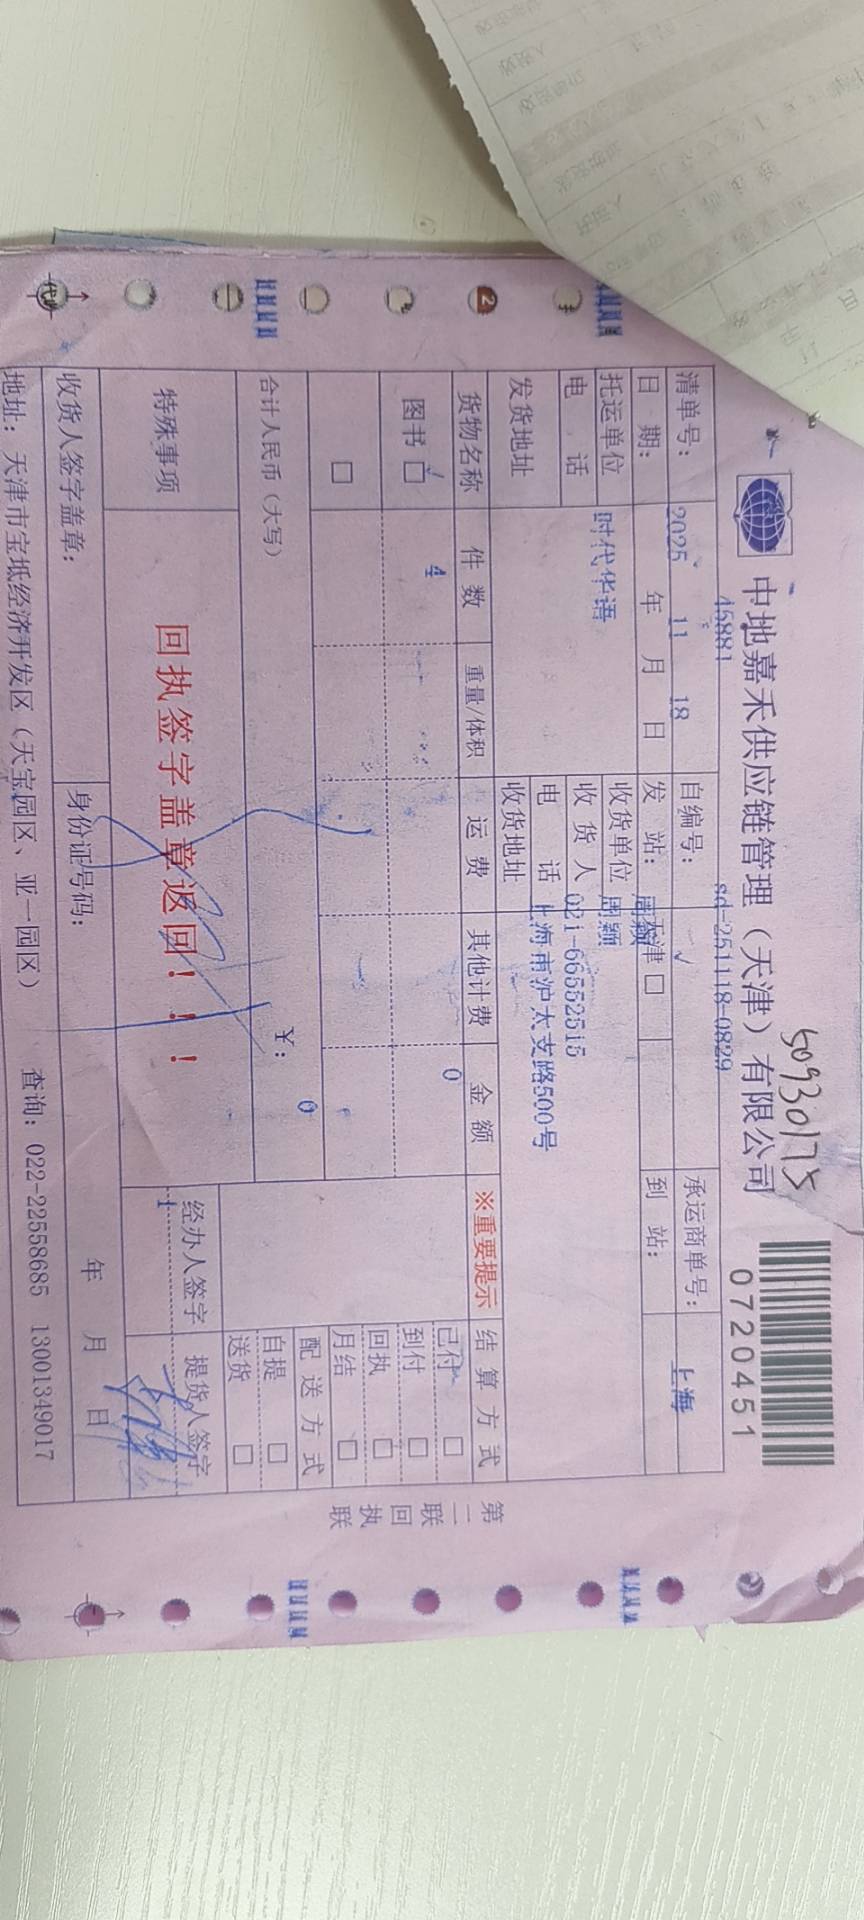 50930175
中地嘉禾供应链管理（天津）有限公司
0720451
45881 sd-251118-0829
清单号： 自编号： 承运商单号：
2025 11 18
日 期： 年 月 日 发 站： 天津 □ 到 站： 上海
托运单位 时代华语 收货单位 周颖
电 话 收 货 人 周颖
发货地址 电 话 021-66552515
收货地址 上海市沪太支路500号
货物名称 件 数 重量/体积 运 费 其他计费 金 额 ※重要提示 结 算 方 式
图书 □ 4 0 已付 □
□ 到付 □
回执 □
月结 □
合计人民币（大写） ￥： 0 配 送 方 式
自提 □
送货 □
特殊事项 回执签字盖章返回！！！ 经办人签字 提货人签字
1
收货人签字盖章： 身份证号码： 年 月 日
地址：天津市宝坻经济开发区（天宝园区、亚一园区） 查询：022-22558685 13001349017
第二联 回执联